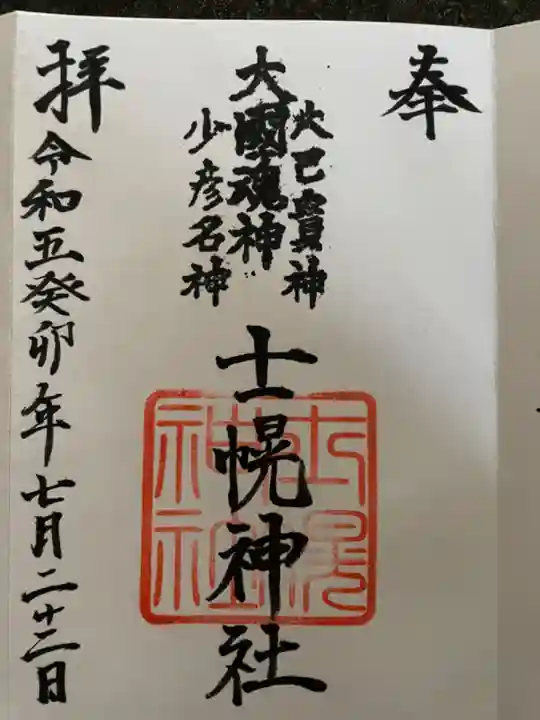 奉
大己貴神
大國魂神
少彦名神
士幌神社
士幌神社
拝
令和五癸卯年七月二十二日